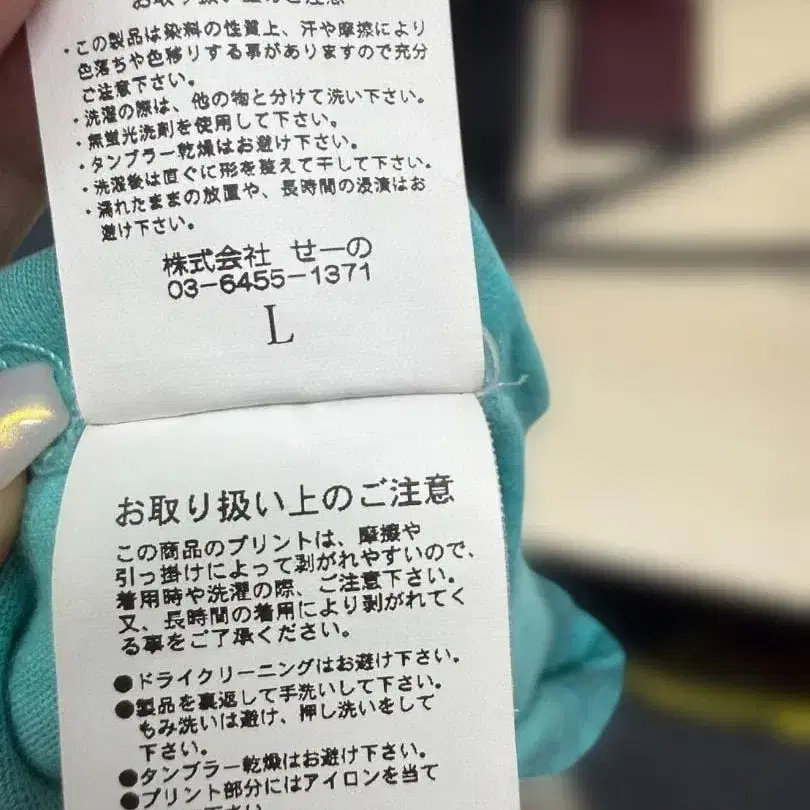 お取り扱い上のご注意
・この製品は染料の性質上、汗や摩擦により
色落ちや色移りする事がありますので充分
ご注意下さい。
・洗濯の際は、他の物と分けて洗い下さい。
・無蛍光洗剤を使用して下さい。
・タンブラー乾燥はお避け下さい。
・洗濯後は直ぐに形を整えて干して下さい。
・濡れたままの放置や、長時間の浸漬はお
避け下さい。
株式会社 せーの
03-6455-1371
L
お取り扱い上のご注意
この商品のプリントは、摩擦や
引っ掛けによって剥がれやすいので、
着用時や洗濯の際、ご注意下さい。
又、長時間の着用により剥がれてく
る事をご了承ください。
●ドライクリーニングはお避け下さい。
●製品を裏返して手洗いして下さい。
もみ洗いは避け、押し洗いをして
下さい。
●タンブラー乾燥はお避け下さい。
●プリント部分にはアイロンを当て